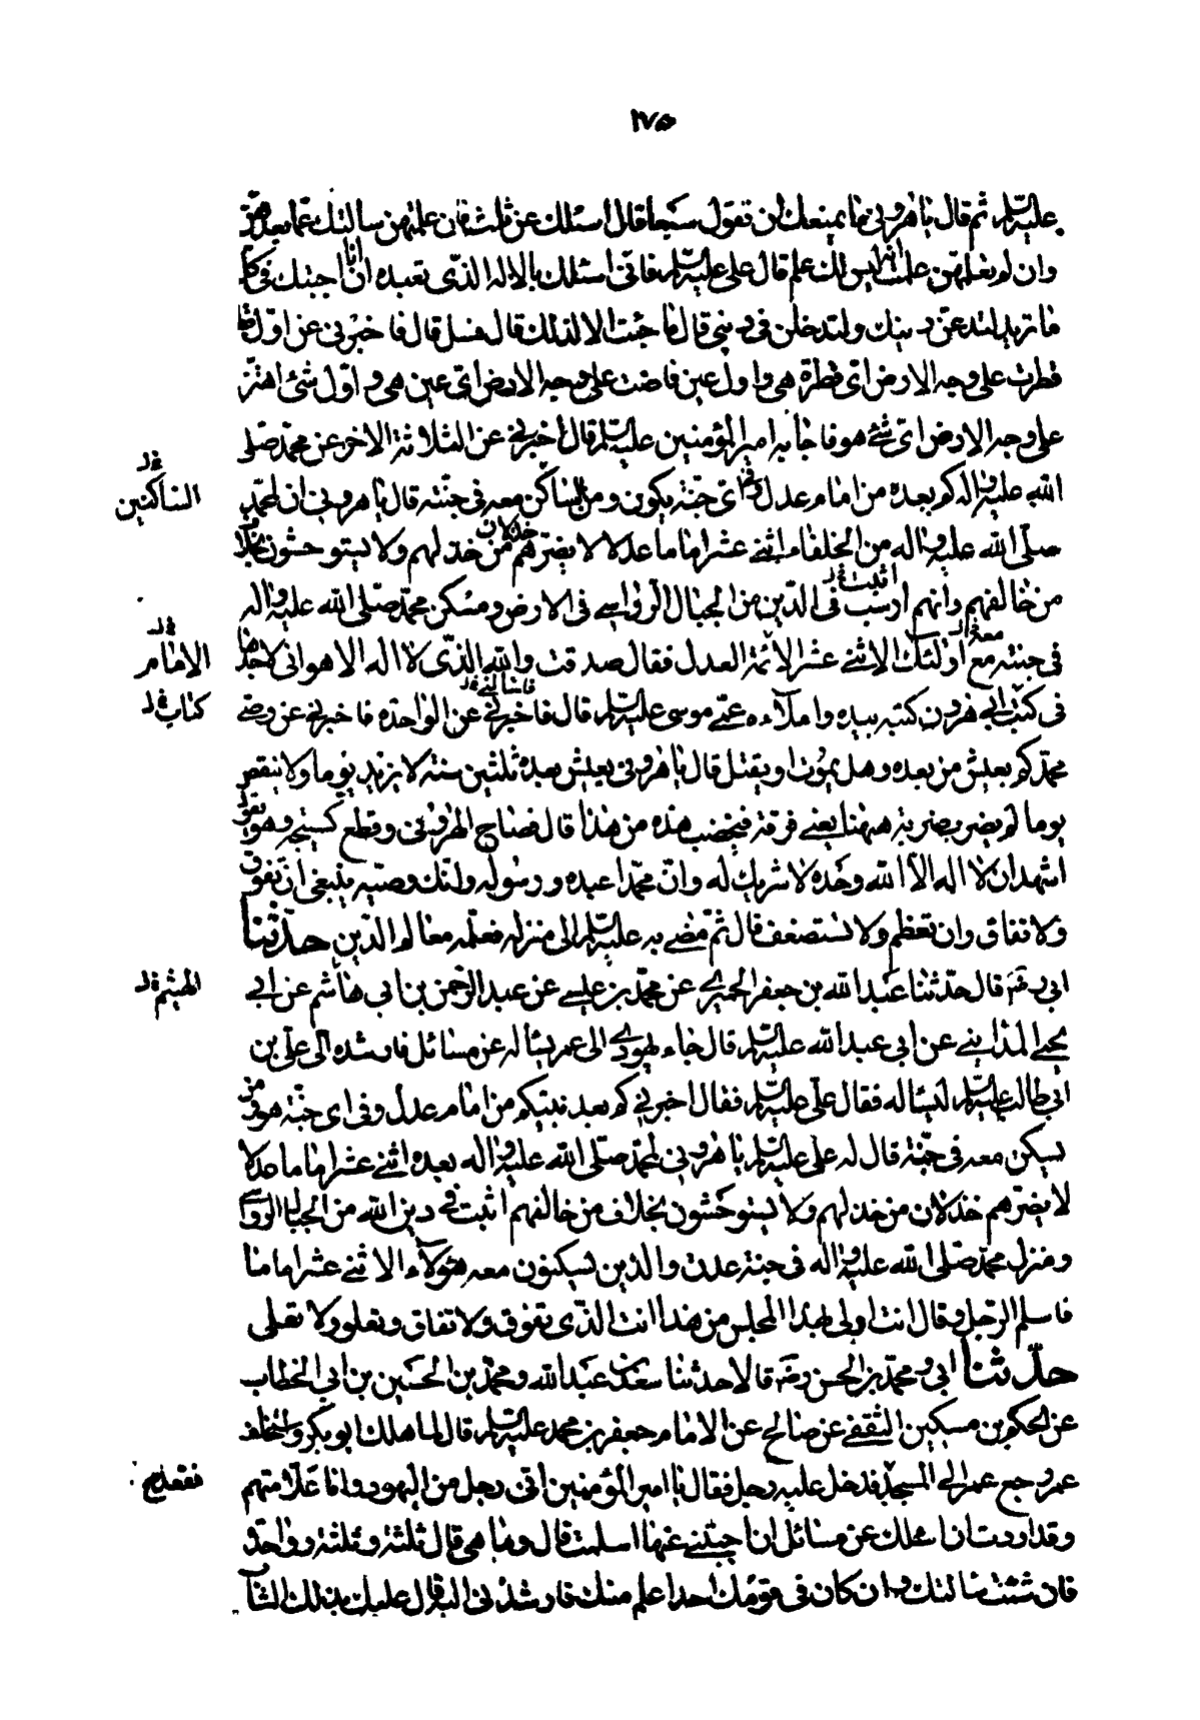 ١٧٥
عليه السلام ثم قال يا هروني ما يمنعك ان تقول سبعا قال اسئلك عن ثلث فان علمتهن سالتك عما بعدهن
وان لم تعلمهن علمت انه ليس لك علم قال علي عليه السلام فاني اسئلك بالاله الذي تعبده ان انا اجبتك في كل
ما تريد لتدعن دينك ولتدخلن في ديني قال ما جئت الا لذلك قال فسل قال فاخبرني عن اول قطرة
قطرت على وجه الارض اي قطرة هي واول عين فاضت على وجه الارض اي عين هي واول شئ اهتز
على وجه الارض اي شئ هو فاجابه امير المؤمنين عليه السلام قال اخبرني عن الثلاثة الاخر عن محمد صلى
الله عليه واله كم بعده من امام عدل وفي اي جنة يكون ومن الساكن معه في جنته قال يا هروني ان لمحمد
الساكنين خ ل
صلى الله عليه واله من الخلفاء اثني عشر اماما عدلا لا يضرهم خذلان من خذلهم ولا يستوحشون بخلاف
من خالفهم وانهم ارسب اثبت خ ل في الدين من الجبال الرواسي في الارض ومسكن محمد صلى الله عليه واله
في جنته مع اولئك الاثني عشر الائمة العدل فقال صدقت والله الذي لا اله الا هو اني لاجدها
الامام خ ل
في كتب ابي هرون كتبه بيده واملاءه عمي موسى عليه السلام قال فاخبرني عن الواحدة فاخبرني عن وصي
كتاب خ ل
محمد كم يعيش من بعده وهل يموت او يقتل قال يا هروني يعيش بعده ثلثين سنة لا يزيد يوما ولا ينقص
يوما ثم يضرب ضربة ههنا يعني فرقه فتخضب هذه من هذا قال فصاح الهروني وقطع كستيجه وهو يقول
اشهد ان لا اله الا الله وحده لا شريك له وان محمدا عبده ورسوله وانك وصيه ينبغي ان تفوق
ولا تفاق وان تعظم ولا تستضعف قال ثم مضى به عليه السلام الى منزله فعلمه معالم الدين حدثنا
ابي رضه قال حدثنا عبد الله بن جعفر الحميري عن محمد بن عيسى عن عبد الرحمن بن ابي هاشم عن ابي
الهيثم خ ل
يحيى المدايني عن ابي عبد الله عليه السلام قال جاء يهودي الى عمر يسأله عن مسائل فارشده الى علي بن
ابي طالب عليه السلام ليسأله فقال علي عليه السلام فقال اخبرني كم بعد نبيكم من امام عدل وفي اي جنة هو ومن
يسكن معه في جنته قال له علي عليه السلام يا هروني لمحمد صلى الله عليه واله بعده اثني عشر اماما عدلا
لا يضرهم خذلان من خذلهم ولا يستوحشون بخلاف من خالفهم اثبت في دين الله من الجبال الرواسي
ومنزل محمد صلى الله عليه واله في جنة عدن والذين يسكنون معه هؤلاء الاثني عشر اماما
فاسلم الرجل وقال انت اولى بهذا المجلس من هذا انت الذي تفوق ولا تفاق وتعلو ولا تعلى
حدثنا ابي ومحمد بن الحسن رضه قالا حدثنا سعد بن عبد الله ومحمد بن الحسين بن ابي الخطاب
عن الحكم بن مسكين الثقفي عن صالح عن الامام جعفر بن محمد عليه السلام قال لما هلك ابو بكر واستخلف
عمر رجع عمر الى المسجد فدخل عليه رجل فقال يا امير المؤمنين اني رجل من اليهود وانا علامتهم
فقعد خ ل
وقد اردت ان اسئلك عن مسائل ان اجبتني عنها اسلمت قال وما هي قال ثلثة وثلثة وواحدة
فان شئت سالتك وان كان في قومك احد اعلم منك فارشدني اليه قال عليك بذلك الشاب